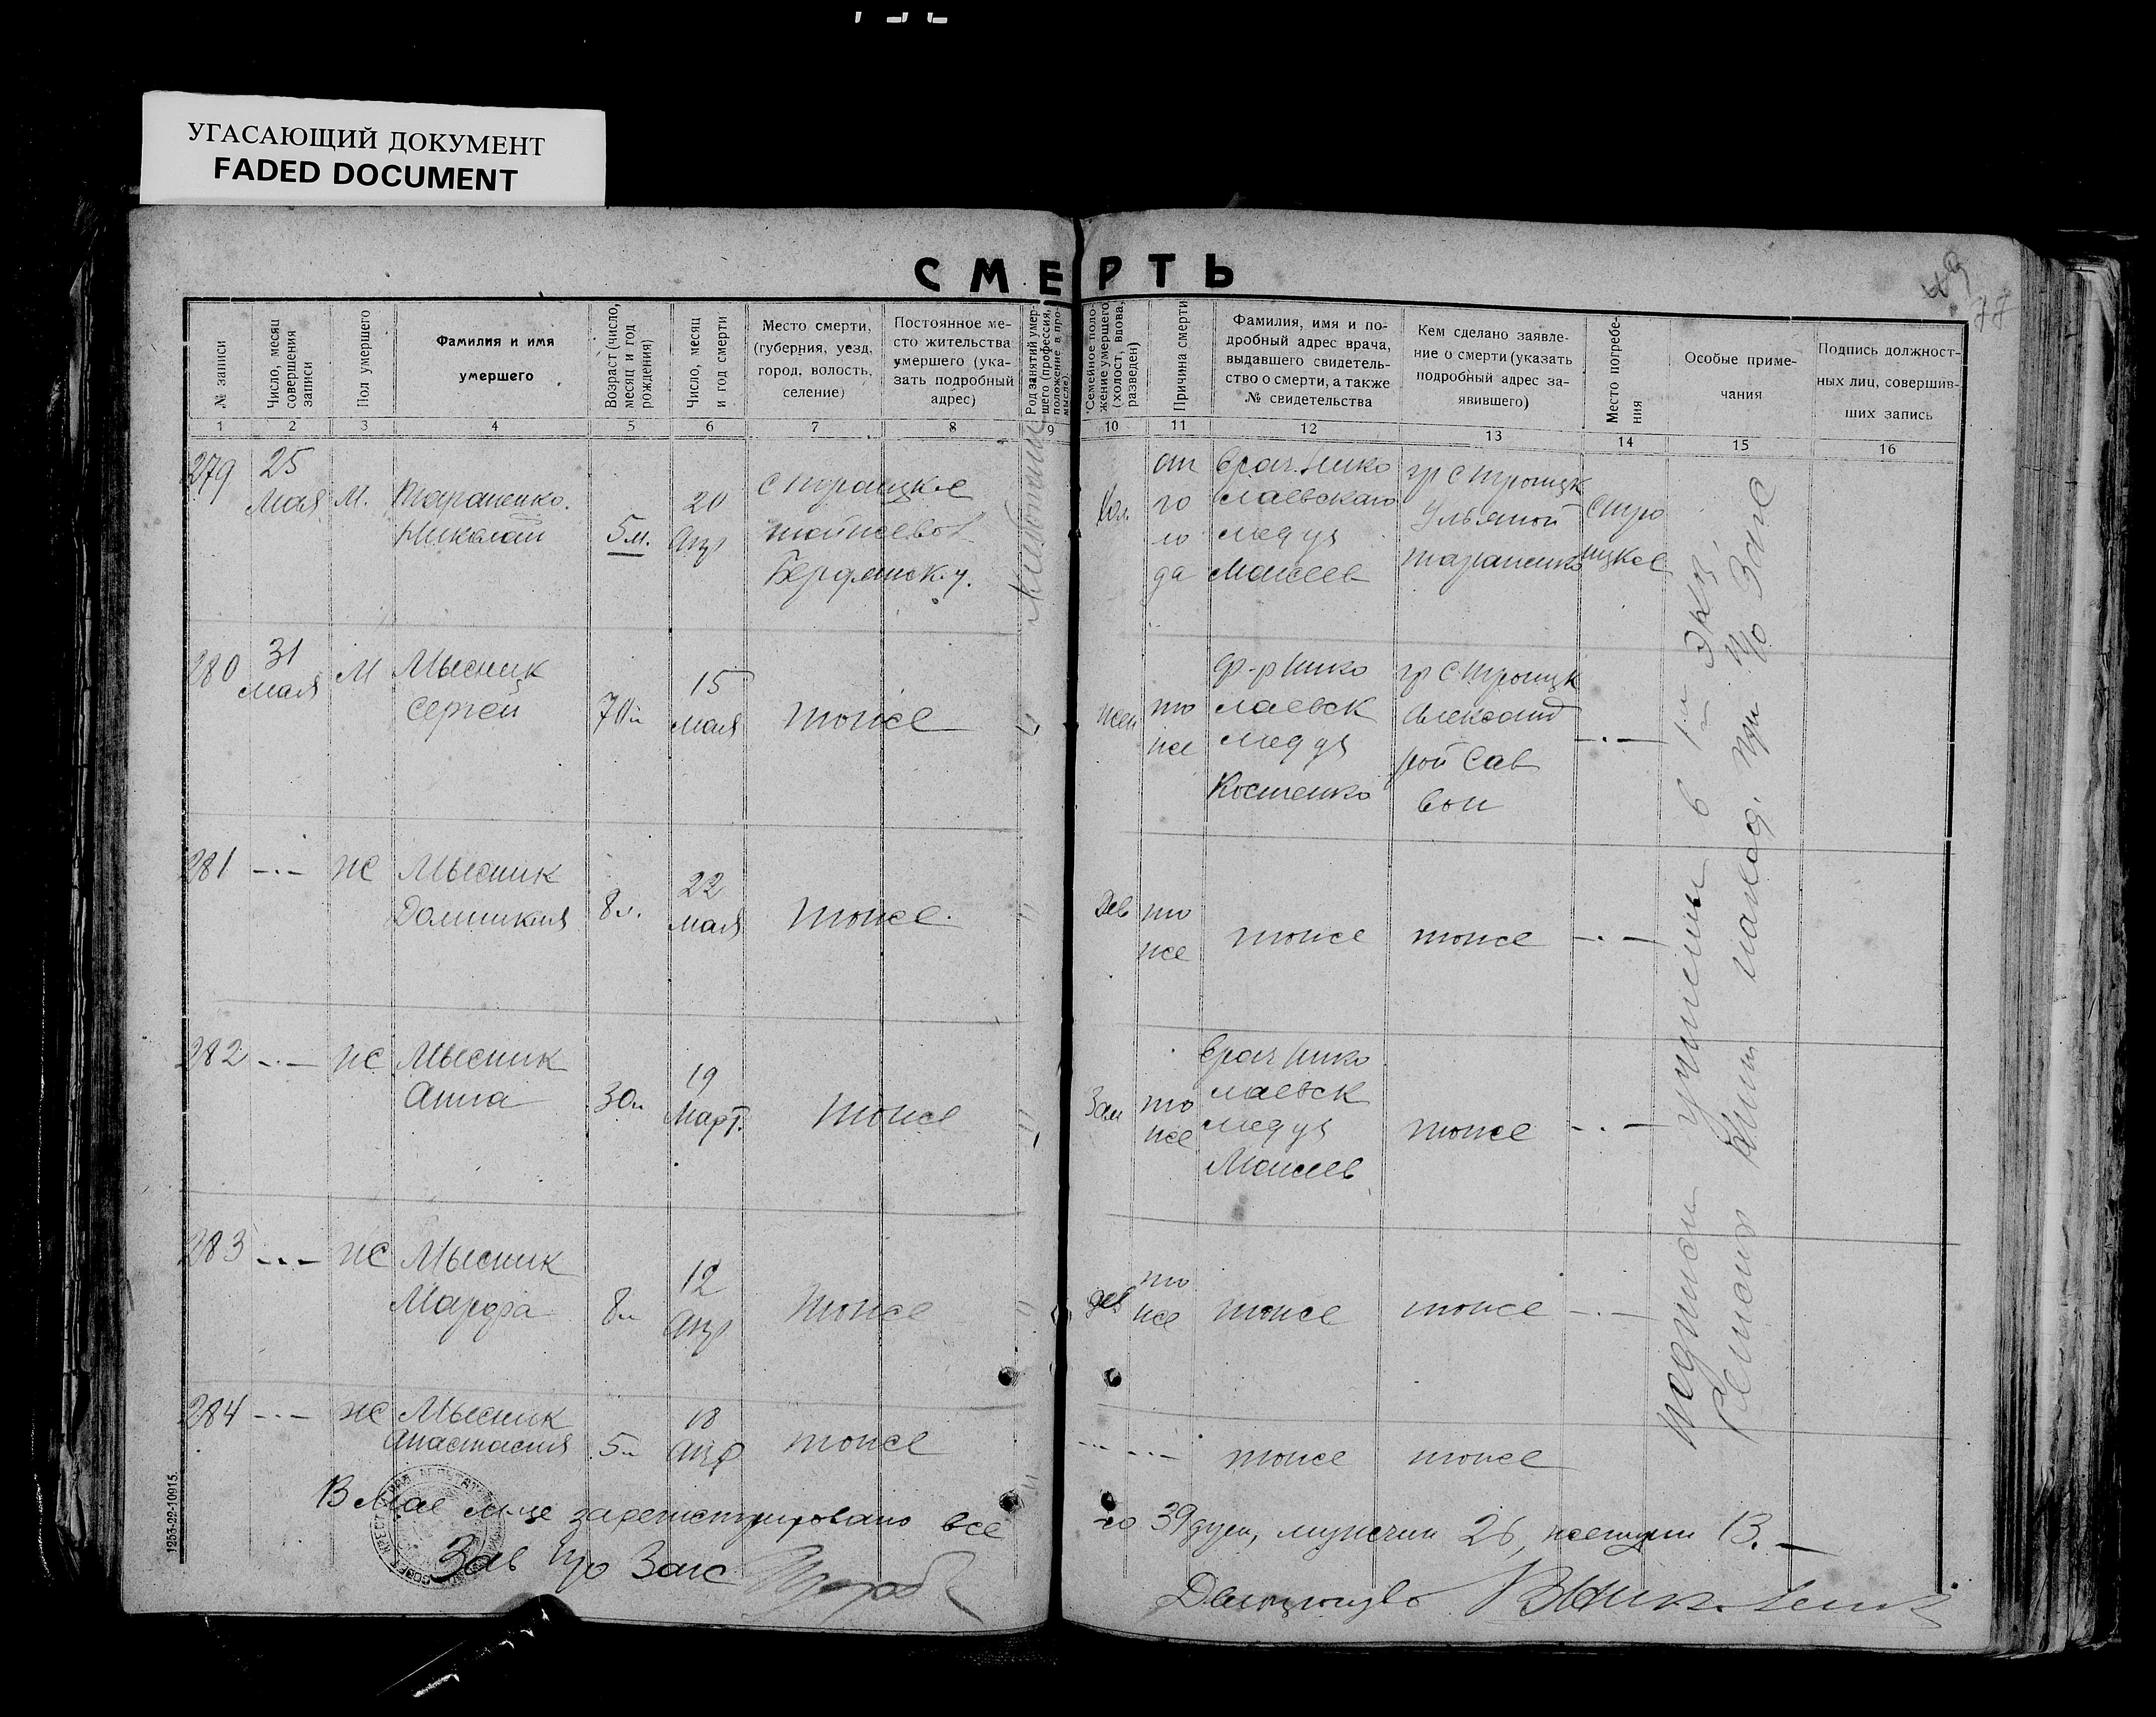 УГАСАЮЩИЙ ДОКУМЕНТ
FADED DOCUMENT
СМЕРТЬ
77
№ записи
Число, месяц
совершения
записи
Пол умершего
Фамилия и имя
умершего
Возраст (число,
месяц и год
рождения)
Число, месяц
и год смерти
Место смерти,
(губерния, уезд,
город, волость,
селение)
Постоянное ме-
сто жительства
умершего (ука-
зать подробный
адрес)
Род занятий умер-
шего (профессия,
положение в про-
мысле).
Семейное поло-
жение умершего
(холост, вдова,
разведен)
Причина смерти
Фамилия, имя и по-
дробный адрес врача,
выдавшего свидетель-
ство о смерти, а также
№ свидетельства
Кем сделано заявле-
ние о смерти (указать
подробный адрес за-
явившего)
Место погребе-
ния
Особые приме-
чания
Подпись должност-
ных лиц, совершив-
ших запись
1 2 3 4 5 6 7 8 9 10 11 12 13 14 15 16
279
25
Мая
М.
Тараненко.
Николай
5 м.
20
Апр
с Троицкое
Бердянск. у.
Хлебопаш
Хол.
от
го
ло
да
врач Нико
лаевского
медуч
Моисеев
гр с Троицк
Ульяной
Тараненко
с Тро
ицкое
280
31
мая
М
Мысник
Сергей
70 л
15
мая
тоже
"
жен
то
же
ф-р Нико
лаевск
медуч
Костенко
гр с Троицк
Александ
рой Сав
вои
-.-
281
-.-
Ж
Мысник
Домникия
8 л.
22
мая
тоже.
"
Дев
то
же
тоже
тоже
-.-
282
-.-
Ж
Мысник
Анна
30 л
19
Март.
тоже
"
Зам
то
же
врач Нико
лаевск
медуч
Моисеев
тоже
-.-
283
-.-
Ж
Мысник
Марфа
8 л
12
Апр
тоже
"
дев
то
же
тоже
тоже
-.-
284
-.-
Ж
Мысник
Анастасия
5 л
18
Апр
тоже
"
-.-
-.-
тоже
тоже
В Мае м-це зарегистрировано все
го 39 душ, мужчин 26, женщин 13.
Зав п/о Загс
Делопроизв
подписи учинены в 1м экз.
книги наход. при п/о Загс
1253-22-10915.